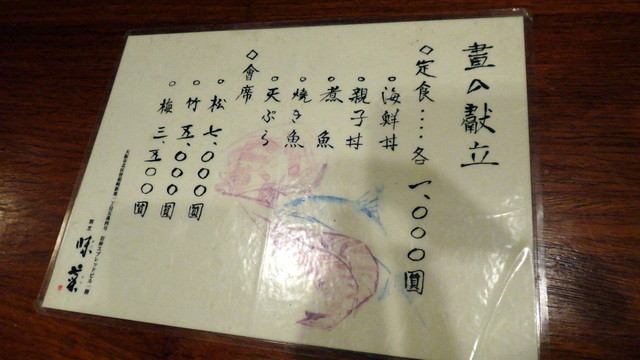 晝の献立
◇定食‥‥各一、〇〇〇圓
○海鮮丼
○親子丼
○煮魚
○焼き魚
○天ぷら
◇會席
○松 七、〇〇〇圓
○竹 五、〇〇〇圓
○梅 三、五〇〇圓
味菜